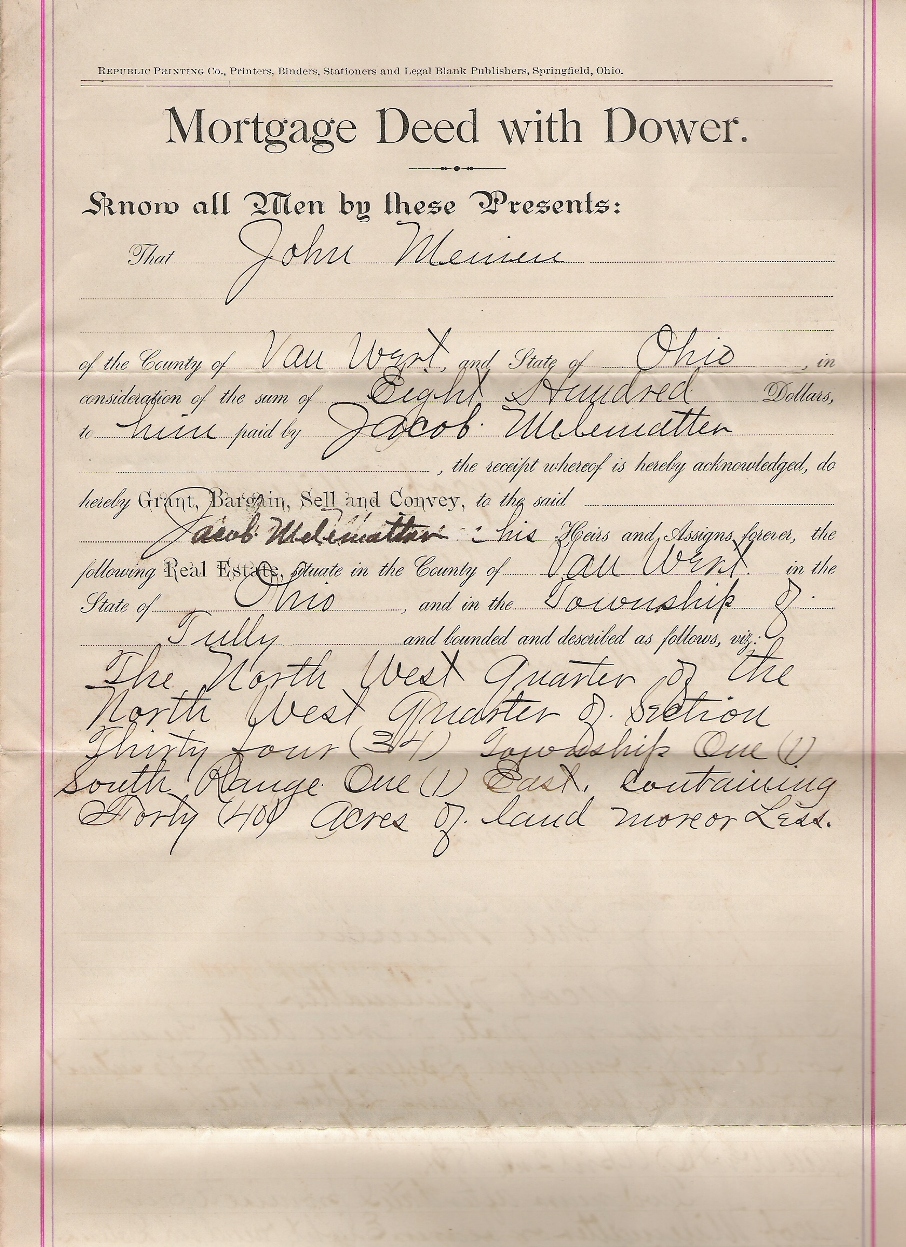 REPUBLIC PRINTING CO., Printers, Binders, Stationers and Legal Blank Publishers, Springfield, Ohio.
Mortgage Deed with Dower.
Know all Men by these Presents:
That John
of the County of Van Wert, and State of Ohio, in
consideration of the sum of Eight Hundred Dollars,
to him paid by Jacob
, the receipt whereof is hereby acknowledged, do
hereby Grant, Bargain, Sell and Convey, to the said
Jacob his Heirs and Assigns forever, the
following Real Estate, situate in the County of Van Wert. in the
State of Ohio, and in the Township of
Tully and bounded and described as follows, viz:
The North West Quarter of the
North West Quarter of Section
Thirty four (34) Township One (1)
South Range One (1) East. Containing
Forty (40) Acres of land more or Less.